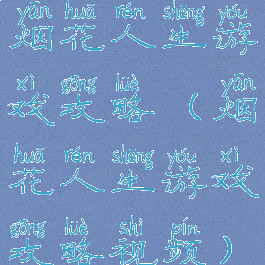 yān huā rén shēng yóu
烟花人生游
xì gōng lüè yān
戏攻略(烟
huā rén shēng yóu xì
花人生游戏
gōng lüè shì pín
攻略视频)